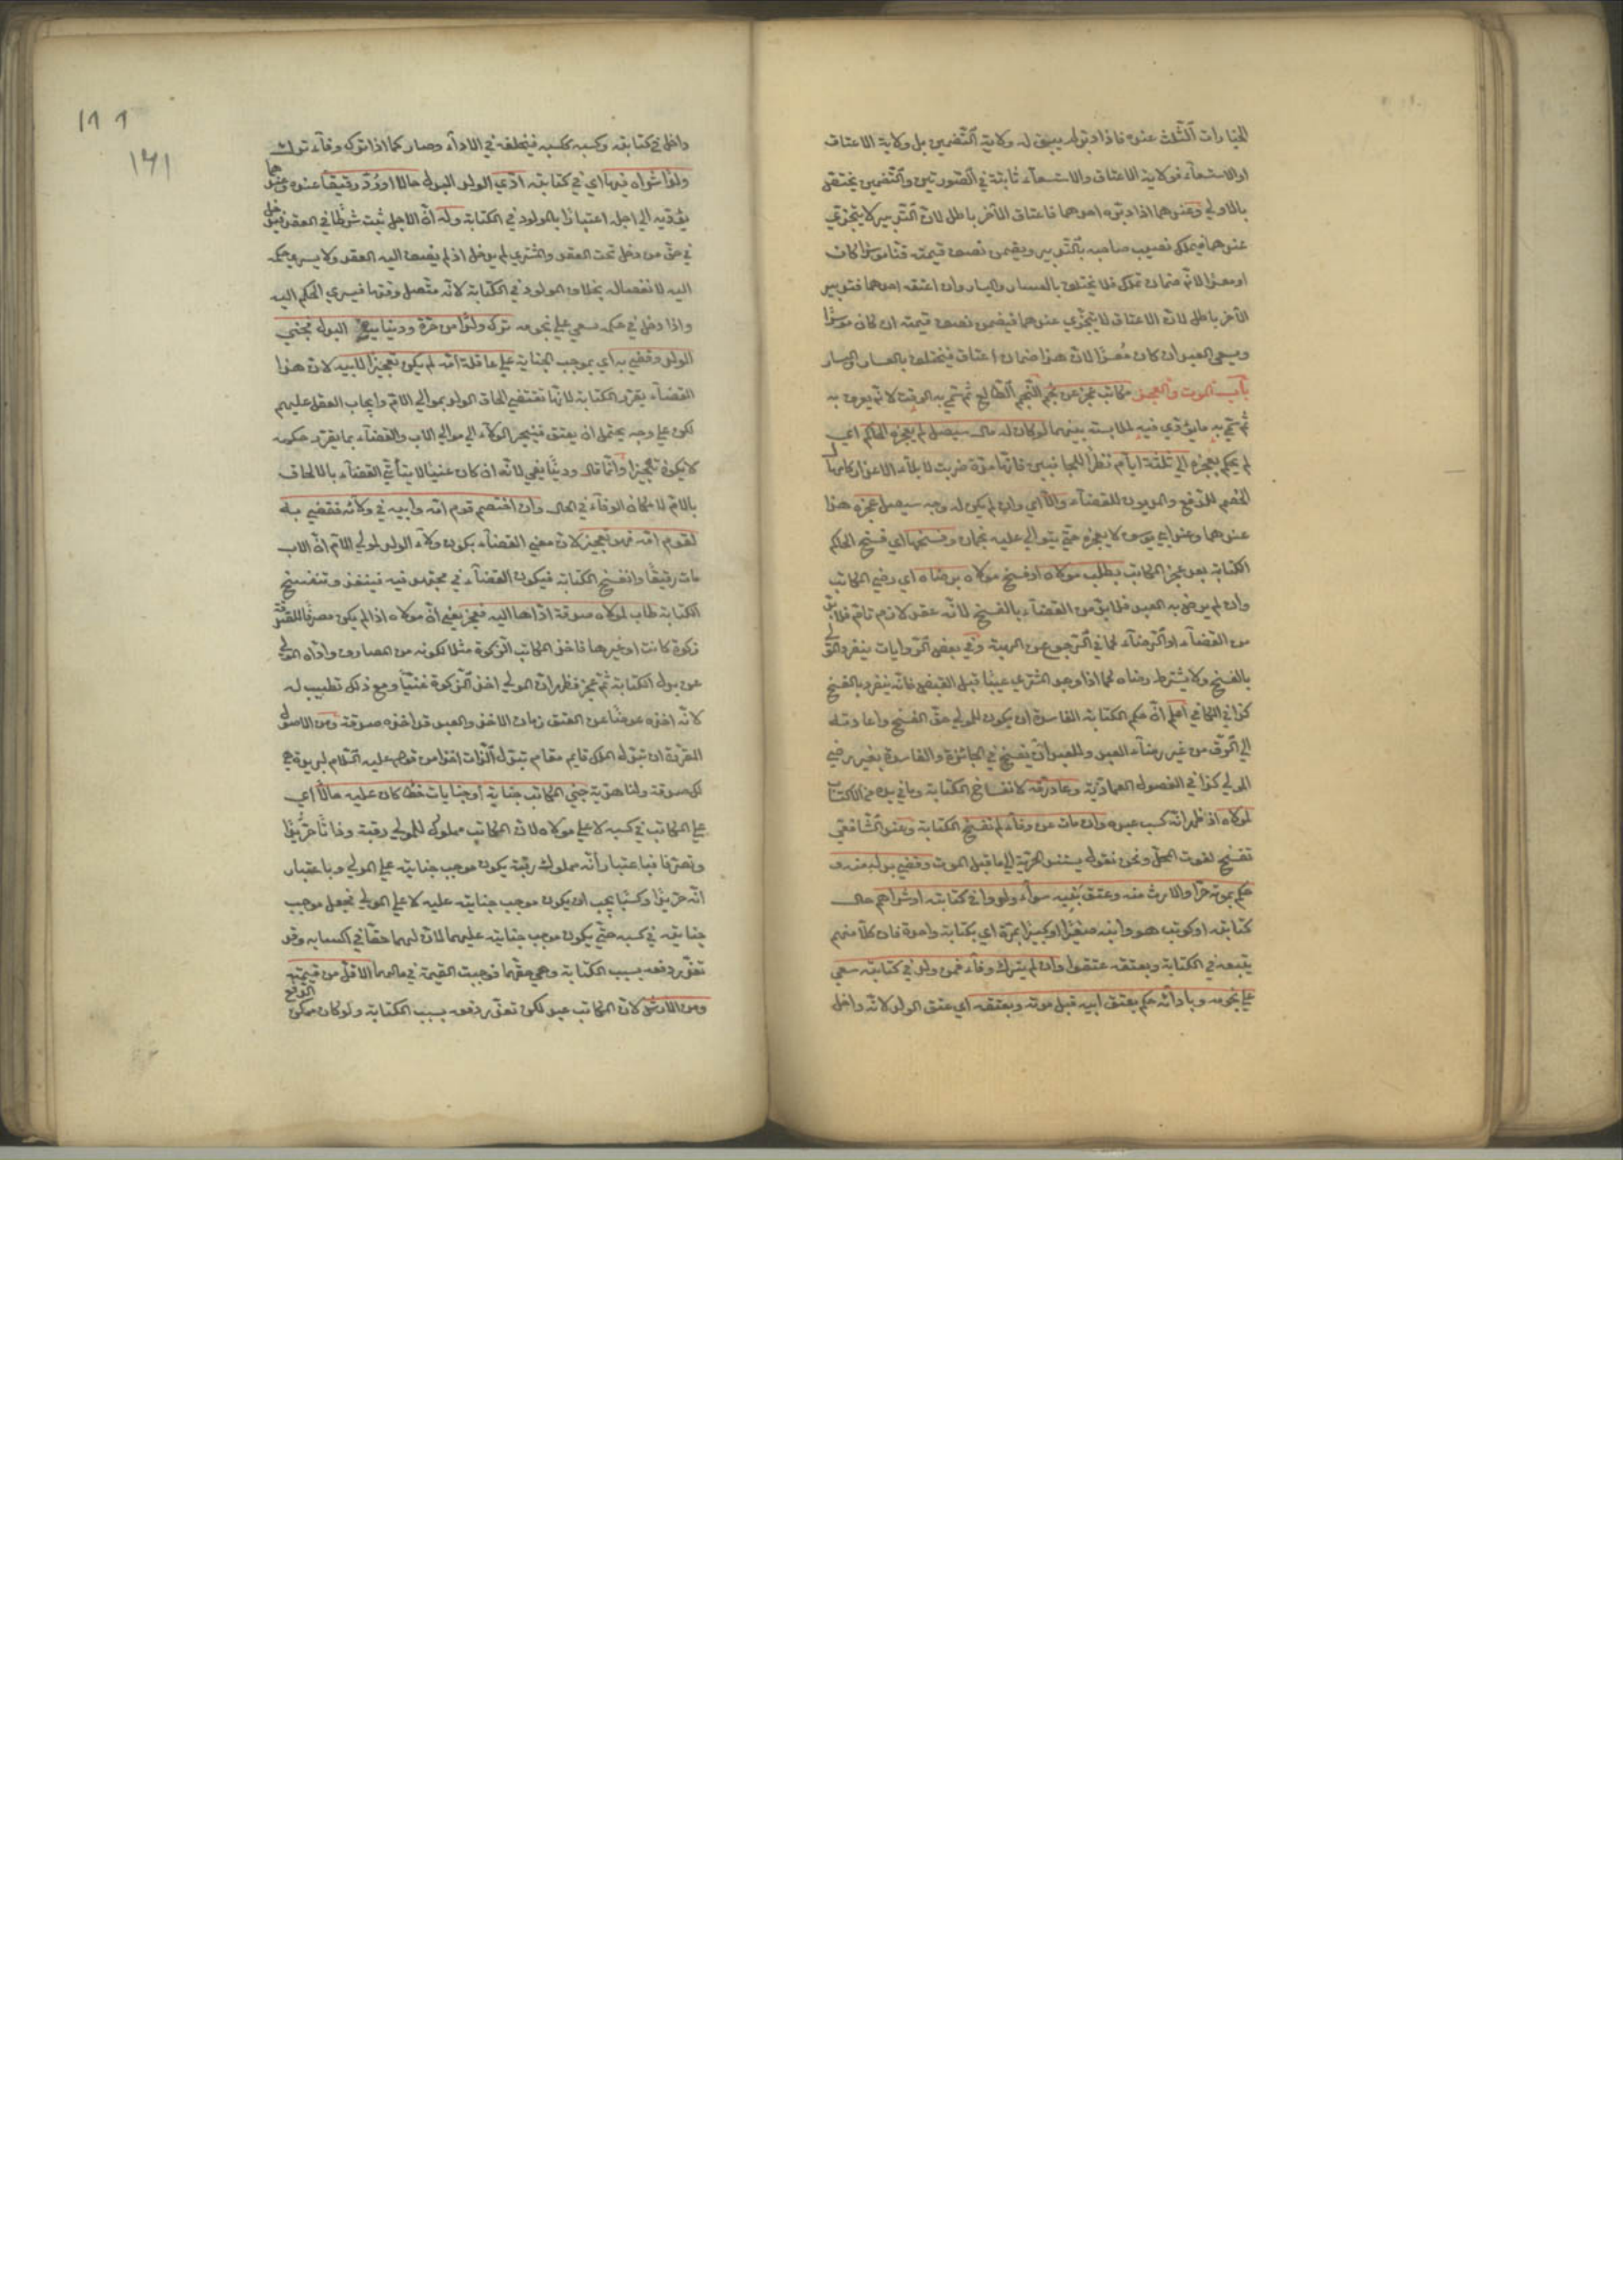 الخيارات الثلث عنده فاذا دبره لم يبق له ولاية التضمين بل ولاية الاعتاق
او الاستسعاء فولاية الاعتاق والاستسعاء ثابتة في الصورتين والتضمين يختص
بالاولى وعندهما اذا دبره احدهما فاعتاق الآخر باطل لان التدبير لا يتجزى
عندهما فيملك نصيب صاحبه بالتدبير ويضمن نصف قيمته قنا موسرا كان
او معسرا لانه ضمان تملك فلا يختلف باليسار والعسار وان اعتقه احدهما فتدبير
الآخر باطل لان الاعتاق لا يتجزى عندهما فيضمن نصف قيمته ان كان موسرا
ويسعى العبد ان كان معسرا لان هذا ضمان اعتاق فيختلف بالعسار واليسار
باب الموت والعجز مكاتب عجز عن نجم النجم الطالع ثم سمي به الوقت لانه يعرف به
ثم سمي به ما يؤدى فيه لملابسته بينهما لو كان له مال سيصل لم يعجزه الحاكم اي
لم يحكم بعجزه الى ثلثة ايام نظرا للجانبين فانها مدة ضربت لابلاء الاعذار كامهال
الخصم للدفع والمديون للقضاء والا اي وان لم يكن له وجه سيصل عجزه هذا
عندهما وعند ابي يوسف لا يعجزه حتى يتوالى عليه نجمان وفسخها اي فسخ الحاكم
الكتابة بعد عجز المكاتب بطلب مولاه او فسخ مولاه برضاه اي رضي المكاتب
وان لم يرض به العبد فلا بد من القضاء بالفسخ لانه عقد لازم تام فلا بد
من القضاء او الرضاء كما في الرجوع عن الهبة وفي بعض الروايات ينفرد المولى
بالفسخ ولا يشترط رضاه كما اذا وجد المشتري عيبا قبل القبض فانه ينفرد بالفسخ
كذا في الكافي اعلم ان حكم الكتابة الفاسدة ان يكون للمولى حق الفسخ واعادته
الى الرق من غير رضاء العبد وللعبد ان يفسخ في الجائزة والفاسدة بغير رضي
المولى كذا في الفصول العمادية وعاد رقه لانفساخ الكتابة وما في يده من الاكساب
لمولاه اذا ظهر انه كسب عبده وان مات عن وفاء لم تفسخ الكتابة وعند الشافعي
تفسخ لفوت المحل ونحن نقول يستند الحرية الى ما قبل الموت وقضي بدله منه و
حكم بموته حرا والارث منه وعتق بنيه سواء ولدوا في كتابته او شراهم حال
كتابته او كوتب هو وابنه صغيرا او كبيرا بمرة اي بكتابة واحدة فان كلا منهم
يتبعه في الكتابة وبعتقه عتقوا وان لم يترك وفاء فمن ولد في كتابته سعى
على نجومه وباداءه حكم بعتق ابيه قبل موته وبعتقه اي عتق الولد لانه داخل
١٢١
داخل في كتابته وكسبه ككسبه فيخلفه في الاداء وصار كما اذا ترك وفاء ترك
ولدا شراه فيها اي في كتابته ادى الولد البدل حالا او رد رقيقا عنده وعندهما
يؤديه الى اجله اعتبارا بالمولود في الكتابة وله ان الاجل ثبت شرطا في العقد فيدخل
في حق من دخل تحت العقد والمشتري لم يدخل اذ لم يضف اليه العقد ولا يسري حكمه
اليه لانفصاله بخلاف المولود في الكتابة لانه متصل وقتها فيسري الحكم اليه
واذا دخل في حكمه سعى على نجومه ترك ولدا من حرة ودينا يبلغ البدل فجنى
الولد وقضي به اي بموجب الجناية على عاقلة امه لم يكن تعجيزا لابيه لان هذا
القضاء يقرر الكتابة لانها تقتضي الحاق الولد بموالي الام وايجاب العقل عليهم
لكن على وجه يحتمل ان يعتق فينجر الولاء الى موالي الاب والقضاء بما يقرر حكمه
لا يكون تعجيزا وانما قال ودينا يفي لانه ان كان عينا لا يتأتى القضاء بالالحاق
بالام لامكان الوفاء في الحال وان اختصم قوم امه وابيه في ولائه فقضي به
لقوم امه فهو تعجيز لان معنى القضاء بكون ولاء الولد لمولى الام ان الاب
مات رقيقا وانفسخ الكتابة فيكون القضاء في مجتهد فيه فينفذ وتنفسخ
الكتابة طاب لمولاه صدقة اداها اليه فعجز يعني ان مولاه اذا لم يكن مصرفا للصدقة
زكوة كانت او غيرها فاخذ المكاتب الزكوة مثلا لكونه من المصارف واداه المولى
عن بدل الكتابة ثم عجز فظهر ان المولى اخذ الزكوة غنيا ومع ذلك تطيب له
لانه اخذه عوضا عن العتق زمان الاخذ والعبد قد اخذه صدقة ومن الاصول
المقررة ان تبدل الملك قايم مقام تبدل الذات اخذا من قوله عليه السلام لبريرة هي
لك صدقة ولنا هدية جنى المكاتب جناية او جنايات خطا كان عليه حالا اي
على المكاتب في كسبه لا على مولاه لان المكاتب مملوك للمولى رقبة وذاتا حر يدا
وتصرفا فباعتبار انه مملوك رقبة يكون موجب جنايته على المولى وباعتبار
انه حر يدا وكسبا يجب ان يكون موجب جنايته عليه لا على المولى فجعل موجب
جنايته في كسبه حتى يكون موجب جنايته عليهما لان لهما حقا في اكسابه وقد
تعذر دفعه بسبب الكتابة وهي حقهما فوجبت القيمة في مالهما الاقل من قيمته
ومن الارش لان المكاتب عبد لكن تعذر دفعه بسبب الكتابة ولو كان ممكن الدفع